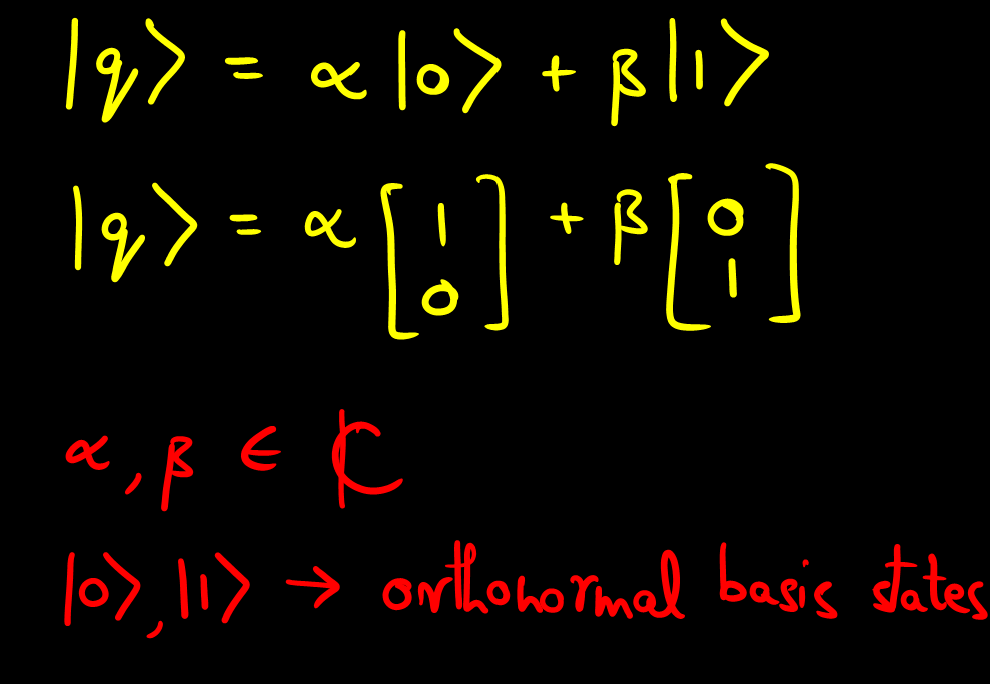 |q⟩ = α|0⟩ + β|1⟩
|q⟩ = α[1 0] + β[0 1]
α, β ∈ ℂ
|0⟩, |1⟩ → orthonormal basis states